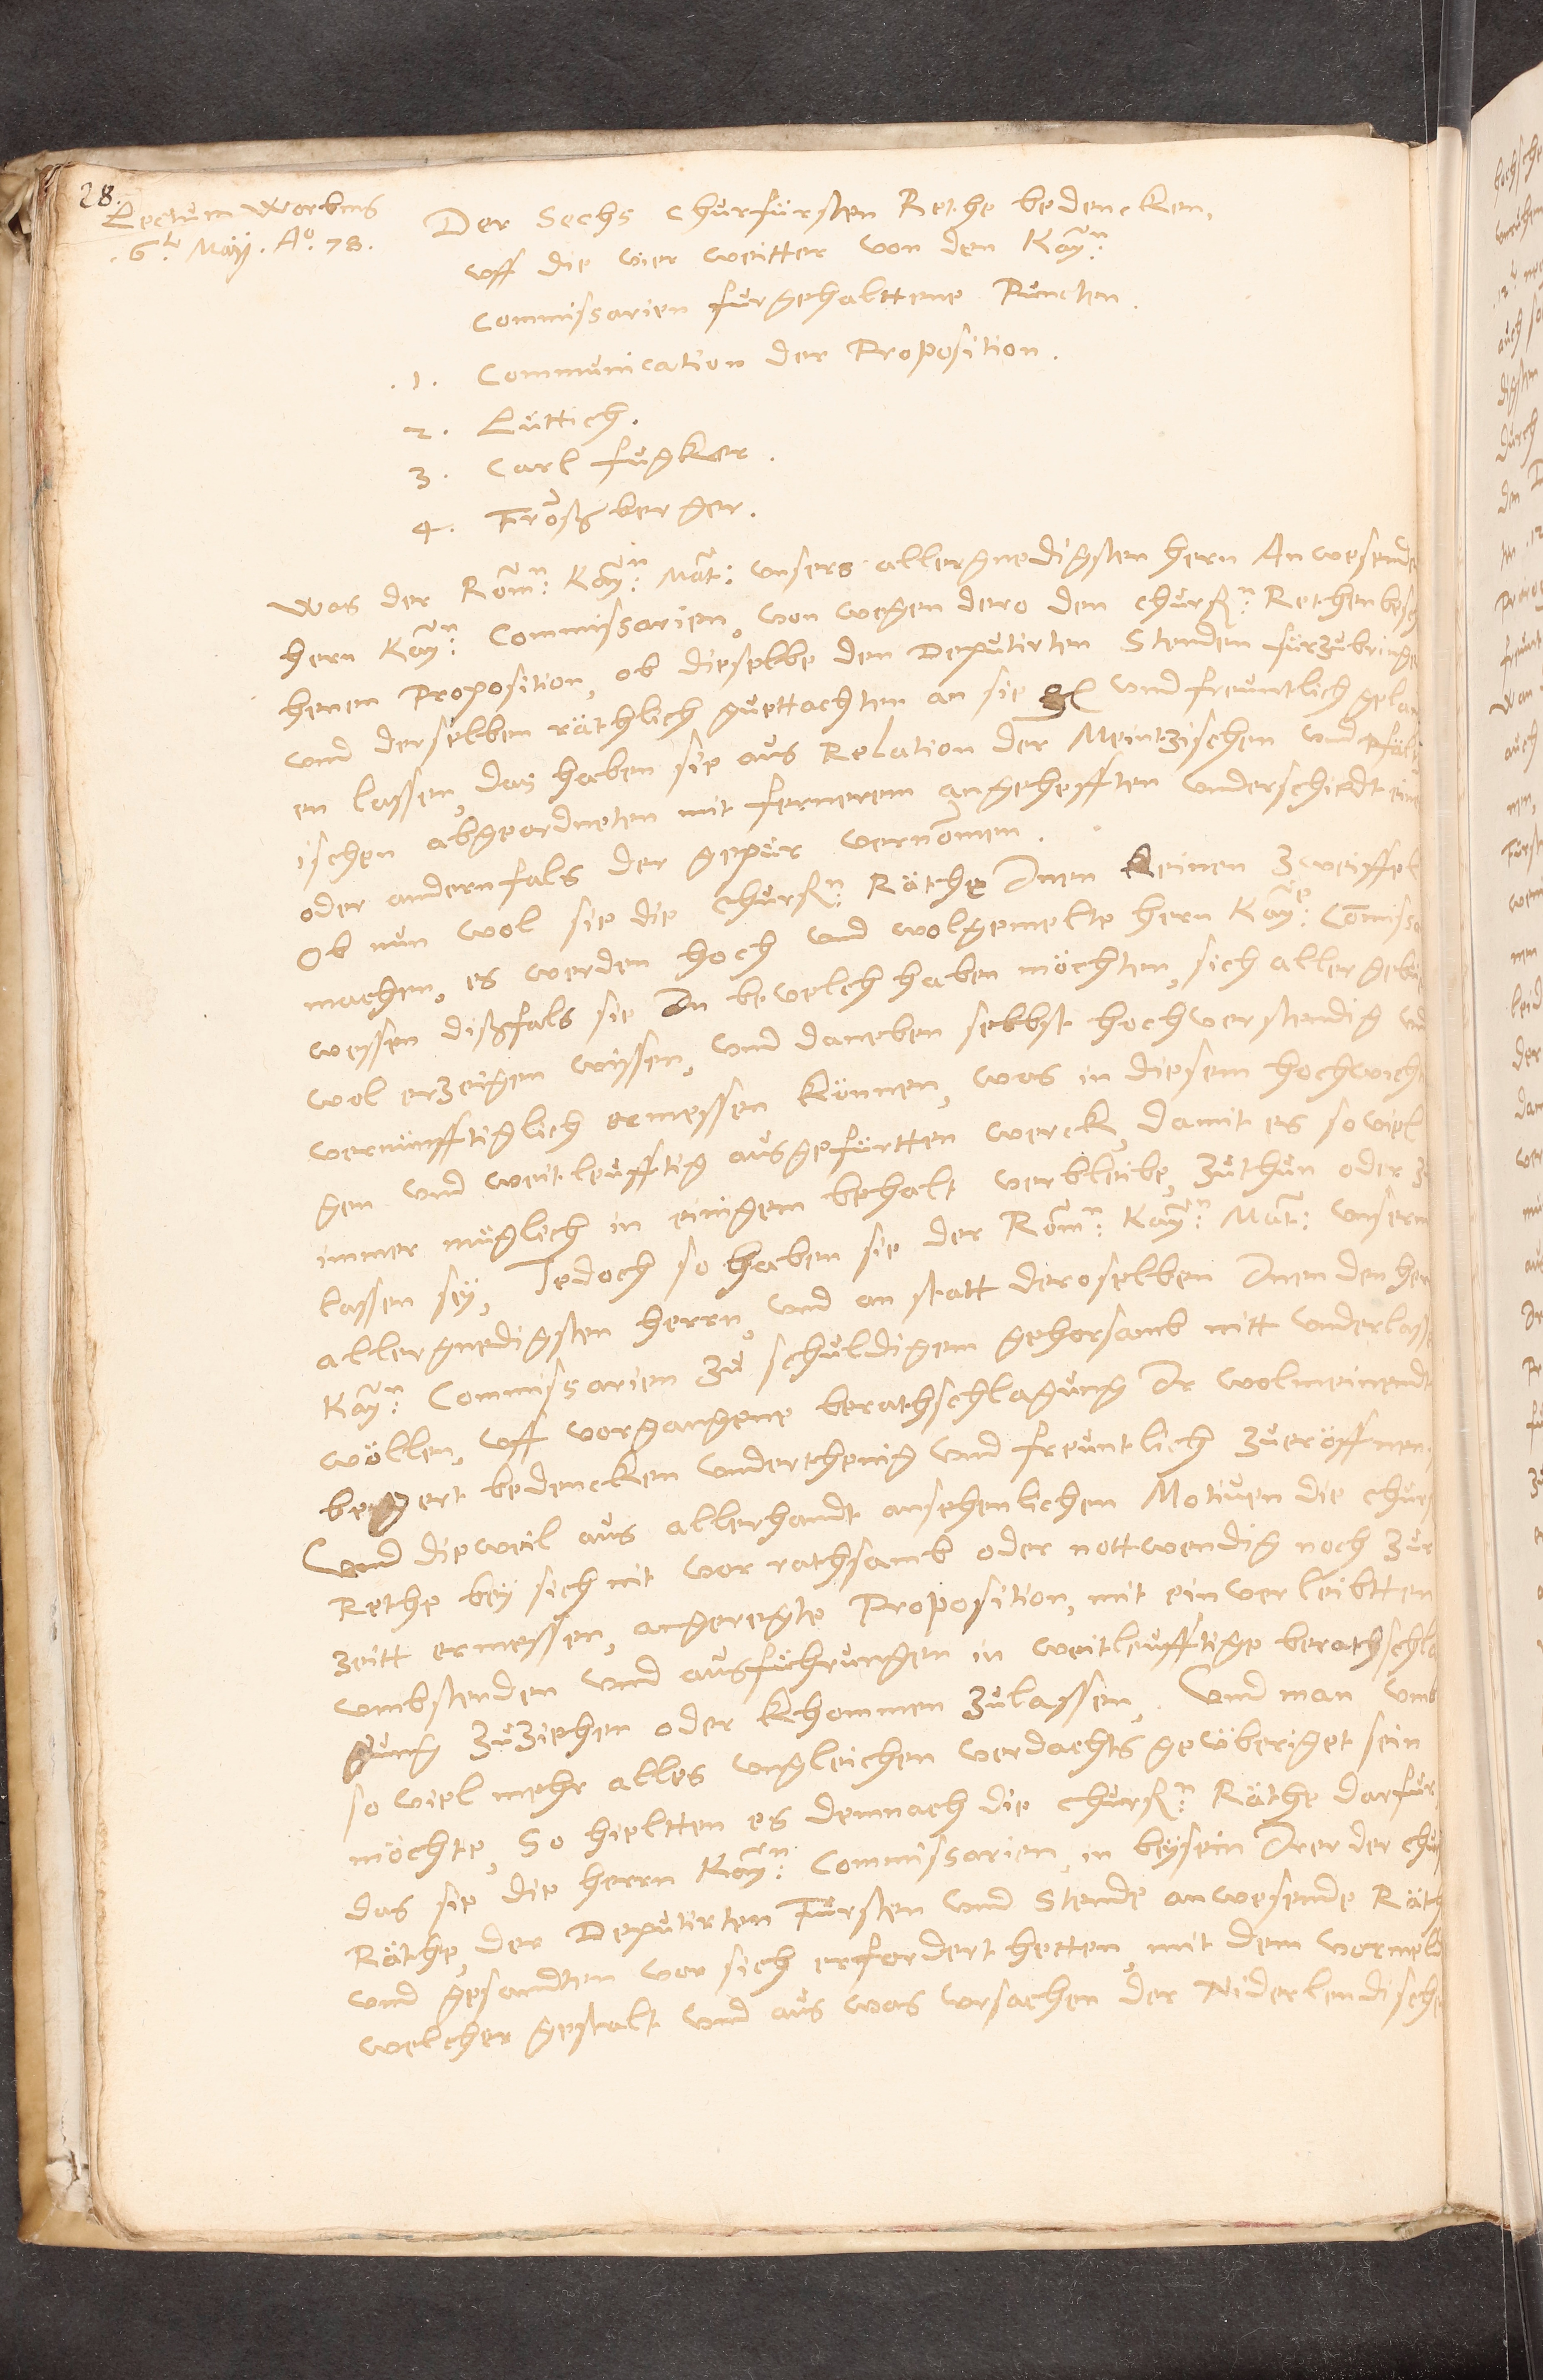 28.
Lectum Worbms
. 6ta Maÿ. Ao. 78.
Der Sechs Churfürsten Rethe bedencken,
uff die vier weitter von den Kayn:
Commissarien fürgehalttene Puncten.
.1. Communication der Proposition.
2. Lüttich.
3. Carl fugkher.
4. Fronßberger.
Was der Römn: Kayn: Mat: unsers allergnedigsten hern Anwesende
hern Kayn: Commissarien, von wegen dero den churfn: Rethen besch
henen Proposition, ob dieselbe den Deputirten Stenden fürzubringe
und derselben räthlich guettachten an sie gl und freuntlich gelan
en lassen, das haben sie aus Relation der Meintzischen und Pfältz
ischen abgeordneten mit fernerem angehefften underschiedt eine
oder andernfals der gepür vernommen.
Ob nun wol sie die Churfn: Räthe Inen keinen zweiffel
machen, es werden hoch und wolgemelte hern Kaye: Commissa
wessen dißfals sie In bevelch haben möchten, sich aller gebü
wol erzeigen wissen, und daneben selbst hochverstendig un
vernünfftiglich ermessen können, was in diesem hochwicht
gen und weitleufftig ausgefürtten werck, damit es soviel
immer müglich in einigem behalt verbleibe, zuthun oder zu
lassen seÿ, Jedoch so haben sie der Römn: Kayn: Mat: unserm
allergnedigsten herrn, und an statt deroselben Inen den her
Kayn: Commissarien zu schuldigem gehorsamb nitt underlasse
wöllen, uff vorgangene berathschlagung Ir wolmeinendt
begert bedencken underthenig und freuntlich zueröffnen.
Und dieweil aus allerhandt ansehenlichen Motiven die churf
Rethe beÿ sich nit vor rathsamb oder nottwendig noch zur
zeitt ermessen, angeregte Proposition, mit einverleibtten
umbstenden und ausführungen in weitleufftige berathschla
gung zuziehen oder khommen zulassen, Und man umb
so viel mehr alles ungleichen verdachts geüberiget sein
möchte, So hieltten es demnach die churfn: Räthe darfür
das sie die herrn Kayn: Commissarien, in beÿsein Irer der chur
Räthe, der Deputirten Fürsten und Stende anwesende Räth
und gesandten vor sich erfordert hetten, mit dem vormeld
welcher gestalt und aus was ursachen der Niderlendische